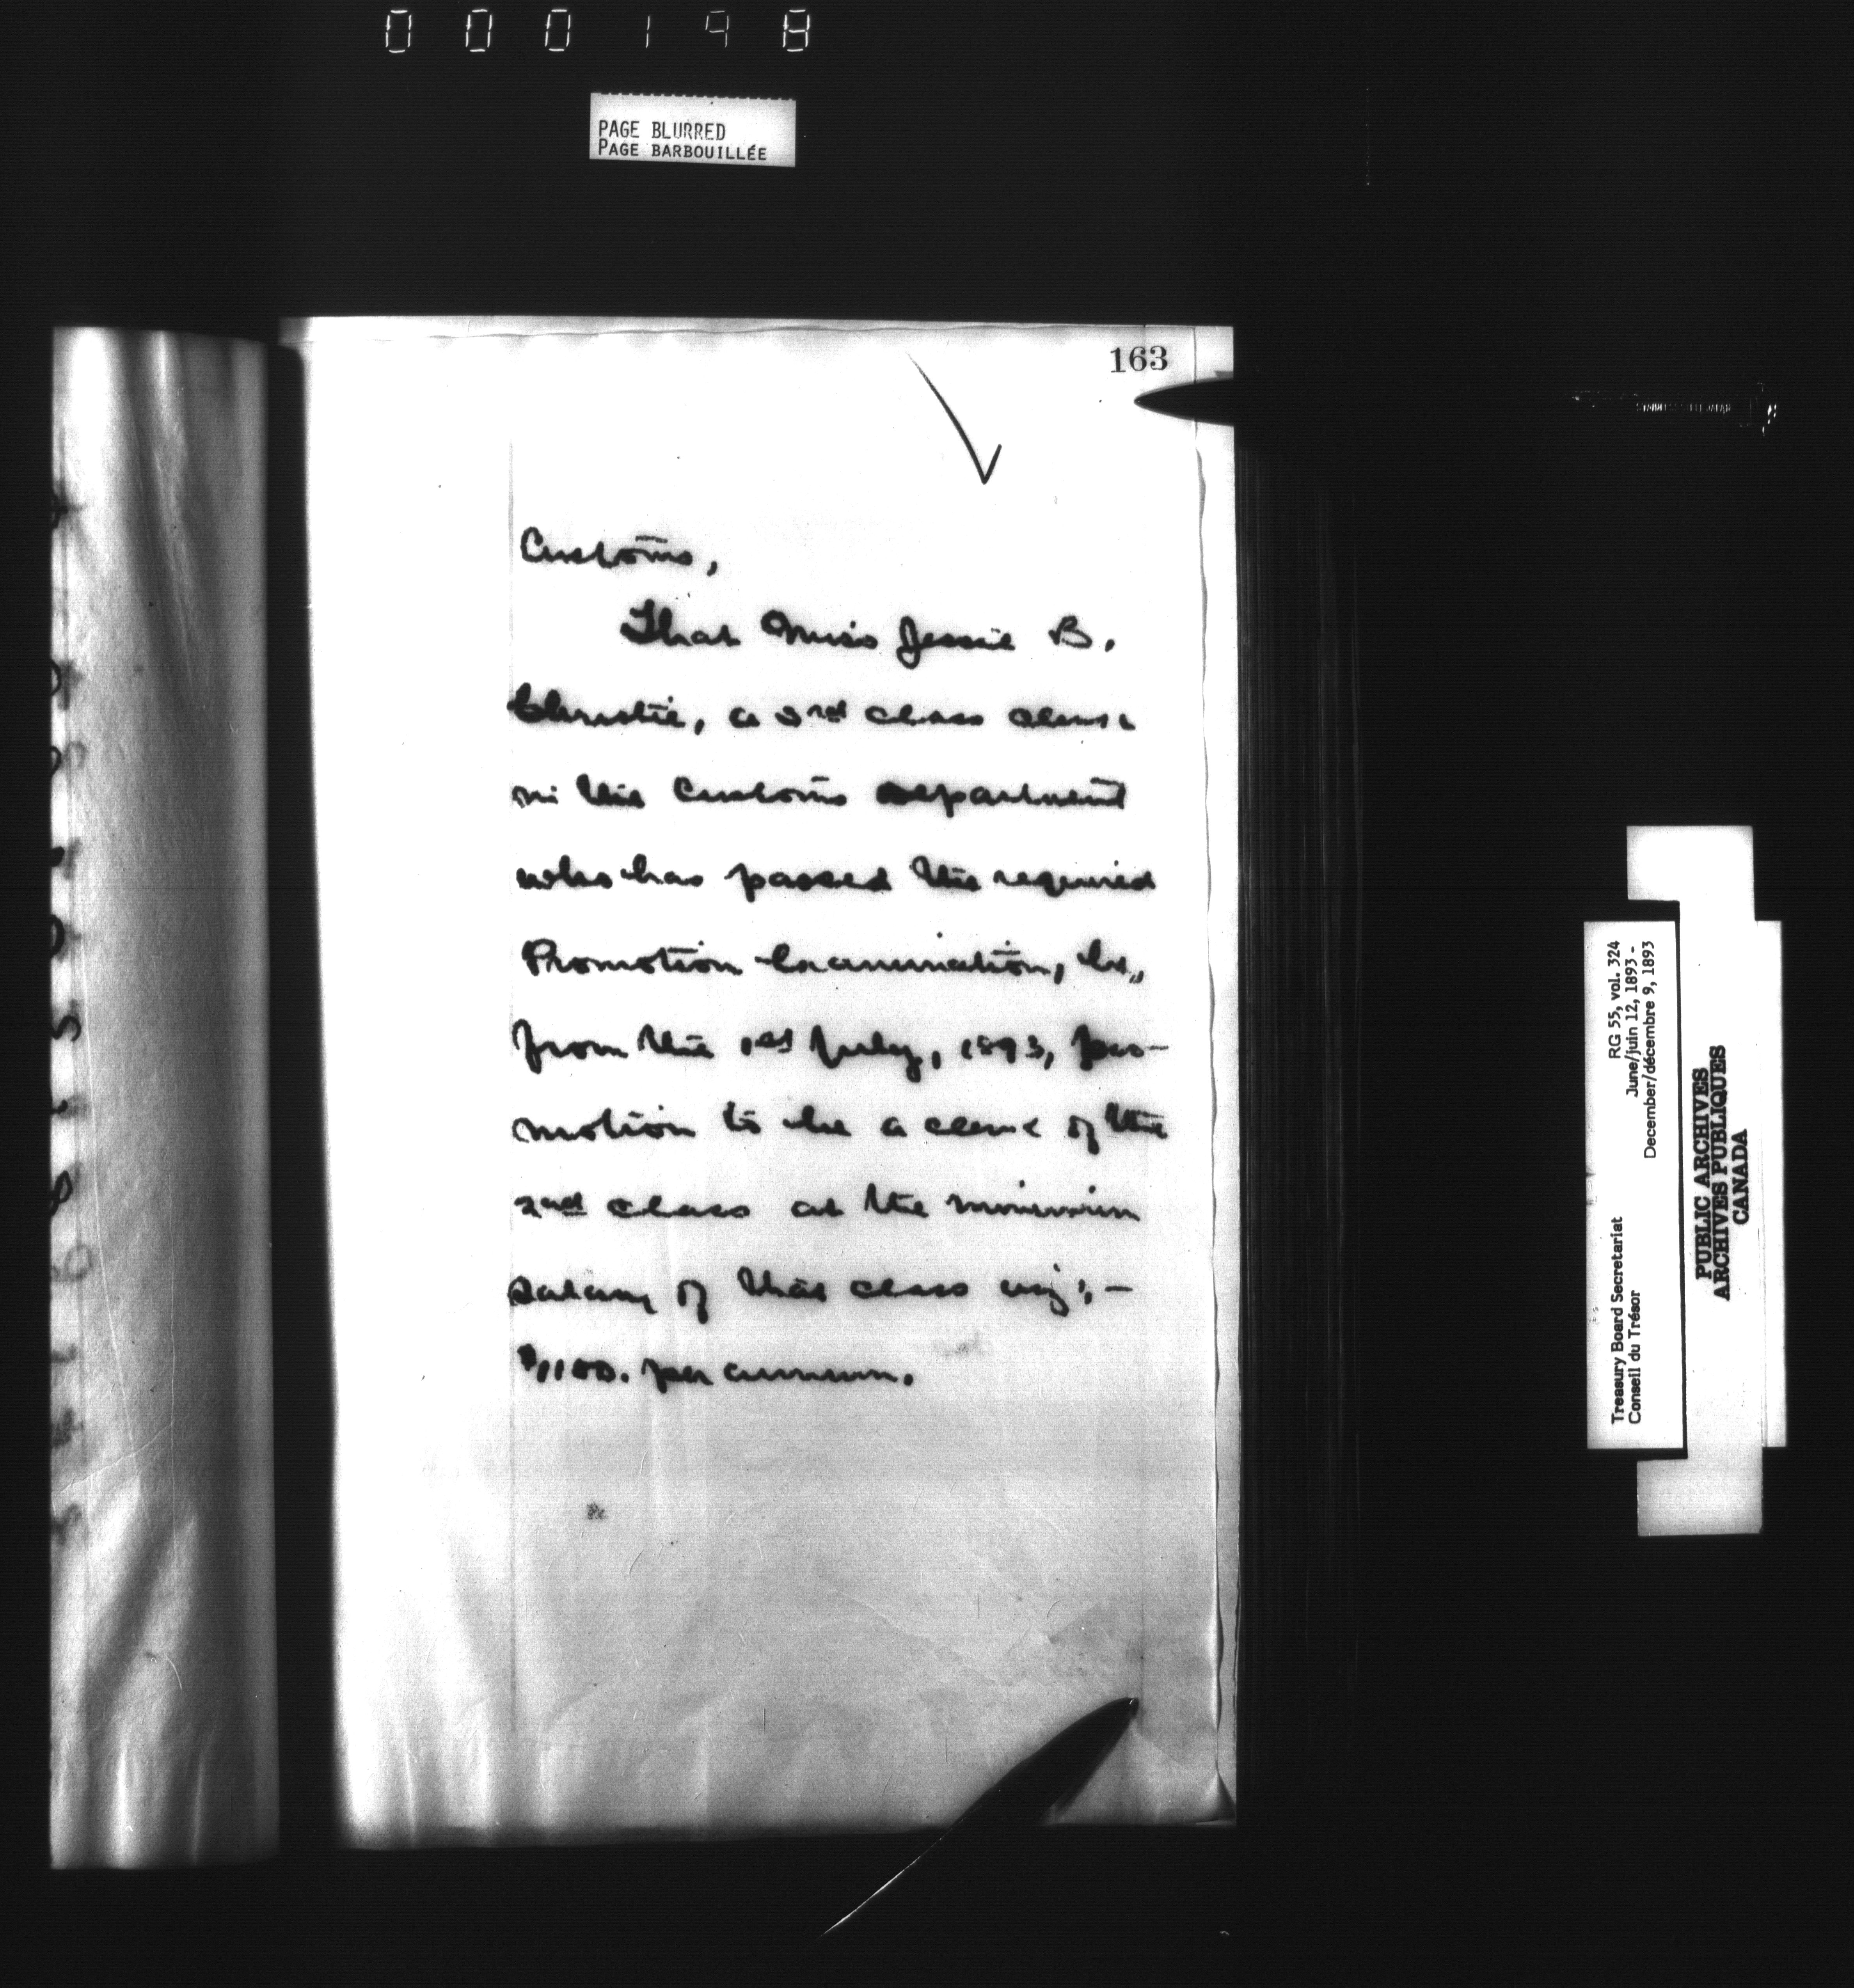 000198
PAGE BLURRED
PAGE BARBOUILLÉE
163
Customs,
That Miss Jessie B.
Christie, a 3rd class clerk
in the Customs Department
who has passed the required
Promotion Examination, be,
from the 1st July, 1893, pro-
motion to be a clerk of the
2nd class at the minimum
salary of that class viz:-
$1100. per annum.
RG 55, vol. 324
June/juin 12, 1893 -
December/décembre 9, 1893
Treasury Board Secretariat
Conseil du Trésor
PUBLIC ARCHIVES
ARCHIVES PUBLIQUES
CANADA